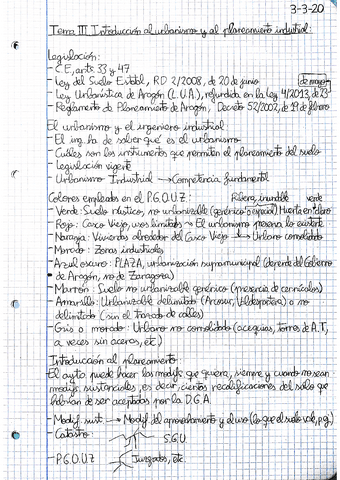 3-3-20
Tema III Introducción al urbanismo y al planeamiento industrial:
Legislación:
- C.E, arts 33 y 47
- Ley del Suelo Estatal, RD 2/2008, de 20 de junio
de mayo
- Ley Urbanística de Aragón (L.U.A), refundida en la ley 4/2013, de 23
- Reglamento de Planeamiento de Aragón, Decreto 52/2002, de 19 de febrero
El urbanismo y el ingeniero industrial
- El ing. ha de saber qué es el urbanismo
- Cuáles son los instrumentos que permiten el planeamiento del suelo
- Legislación vigente
- Urbanismo Industrial → Competencia fundamental
Colores empleados en el P.G.O.U.Z: Ribera, inundable verde
- Verde: Suelo rústico, no urbanizable (genérico o especial) Huerta en claro
- Rojo: Casco Viejo, usos limitados → El urbanismo preserva lo existente
- Naranja: Viviendas alrededor del Casco Viejo → Urbano consolidado
- Morado: Zonas industriales
- Azul oscuro: PLAZA, urbanización supramunicipal (depende del Gobierno
de Aragón, no de Zaragoza)
- Marrón: Suelo no urbanizable genérico (presencia de cernícalos)
- Amarillo: Urbanizable delimitado (Arcosur, Valdespartera) o no
delimitado (sin el trazado de calles)
- Gris o morado: Urbano no consolidado (acequias, torres de A.T,
a veces sin aceras, etc)
Introducción al planeamiento
El ayto puede hacer las modifs que quiera, siempre y cuando no sean
modifs. sustanciales, es decir, ciertas recalificaciones del suelo que
habrían de ser aceptadas por la D.G.A.
- Modif. sust. → Modif del aprovechamiento y el uso (lo que el suelo vale, p.g.)
- Catastro
S.G.U
- P.G.O.U.Z Juzgados, etc.